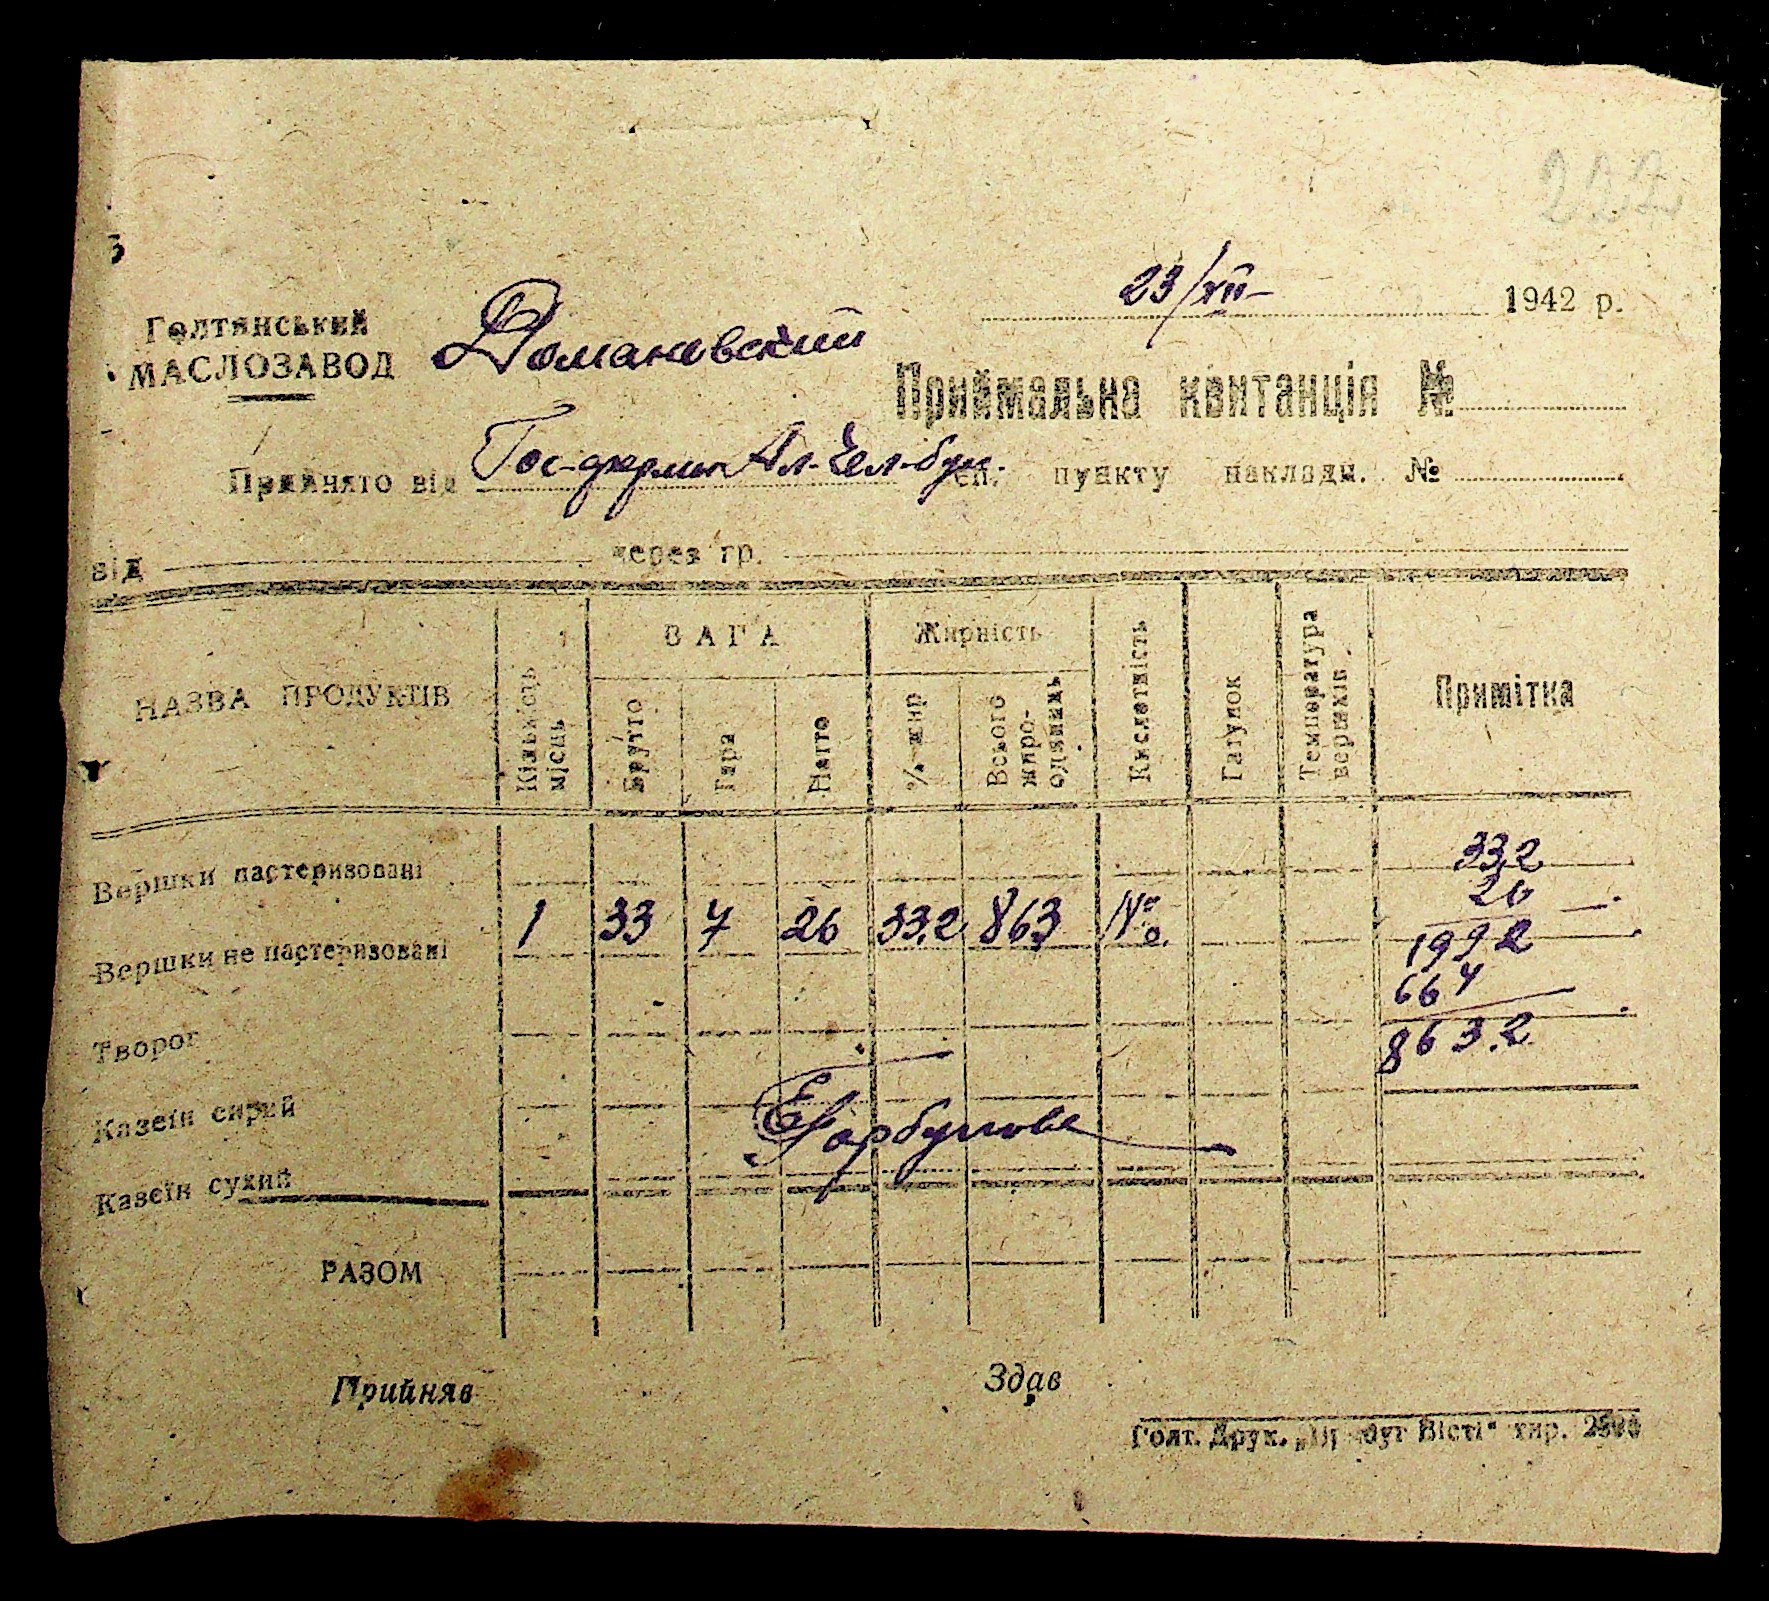 222
23/VII 1942 р.
Голтянський
МАСЛОЗАВОД
Домановский
Приймальна квитанція №
Прийнято від Гос-ферми Ал. сеп. пункту наклади. №
від через гр.
НАЗВА ПРОДУКТІВ
Кількість місць
ВАГА
Брутто
Тара
Нетто
Жирність
% жир
Всього жиро-одиниць
Кислотність
Гатунок
Температура вершків
Примітка
Вершки пастеризовані
Вершки не пастеризовані 1 33 7 26 33,2 863 №о.
33,2
26
1992
664
863.2
Творог
Казеїн сирий
Казеїн сухий
Горбунова
РАЗОМ
Прийняв Здав
Голт. Друк. „Прибуг Вісті“ тир. 2500